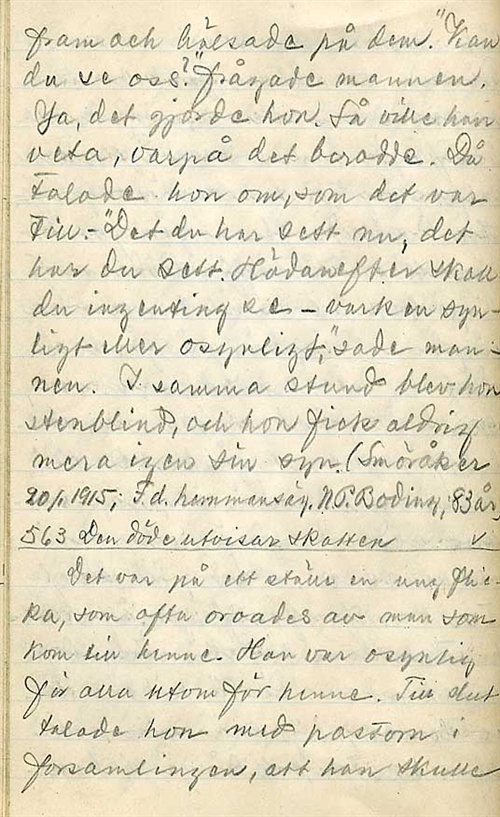 fram och hälsade på dem. "Kan
du se oss?" frågade mannen.
Ja, det gjorde hon. Så ville han
veta, varpå det berodde. Då
talade hon om, som det var
till. - "Det du har sett nu, det
har du sett. Hädanefter skall
du ingenting se - varken syn-
ligt eller osynligt," sade man-
nen. I samma stund blev hon
stenblind, och hon fick aldrig
mera igen sin syn. (Smöråker
20/1 1915; F.d. hemmansäg. N.P. Boding, 83 år
563 Den döde utvisar skatten
Det var på ett ställe en ung flic-
ka, som ofta oroades av man som
kom till henne. Han var osynlig
för alla utom för henne. Till slut
talade hon med pastorn i
församlingen, att han skulle